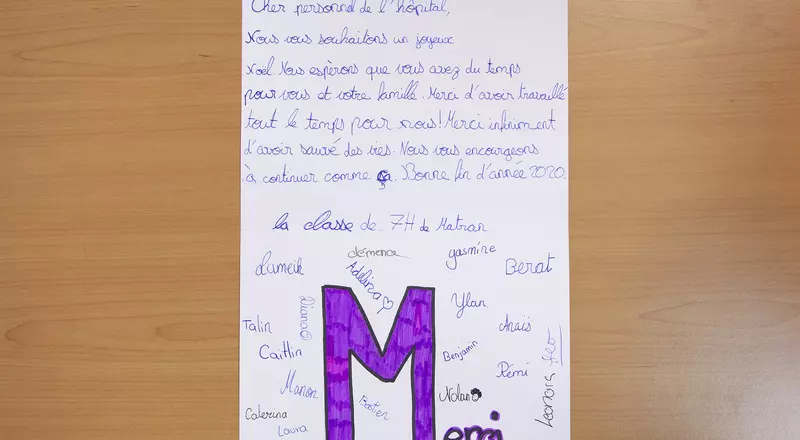 Cher personnel de l'hôpital,
Nous vous souhaitons un joyeux
Noël. Nous espérons que vous avez du temps
pour vous et votre famille. Merci d'avoir travaillé
tout le temps pour nous! Merci infiniment
d'avoir sauvé des vies. Nous vous encourgeons
à continuer comme ça. Bonne fin d'année 2020.
la classe de 7H de Matran
clémence
yasmine
Lameik
Adelina
Berat
Diana
Ylan
Talin
Anaïs
Léo
Caitlin
Benjamin
Rémi
Manon
Nolan
Leonora
Caterina
Bastien
Laura
Merci